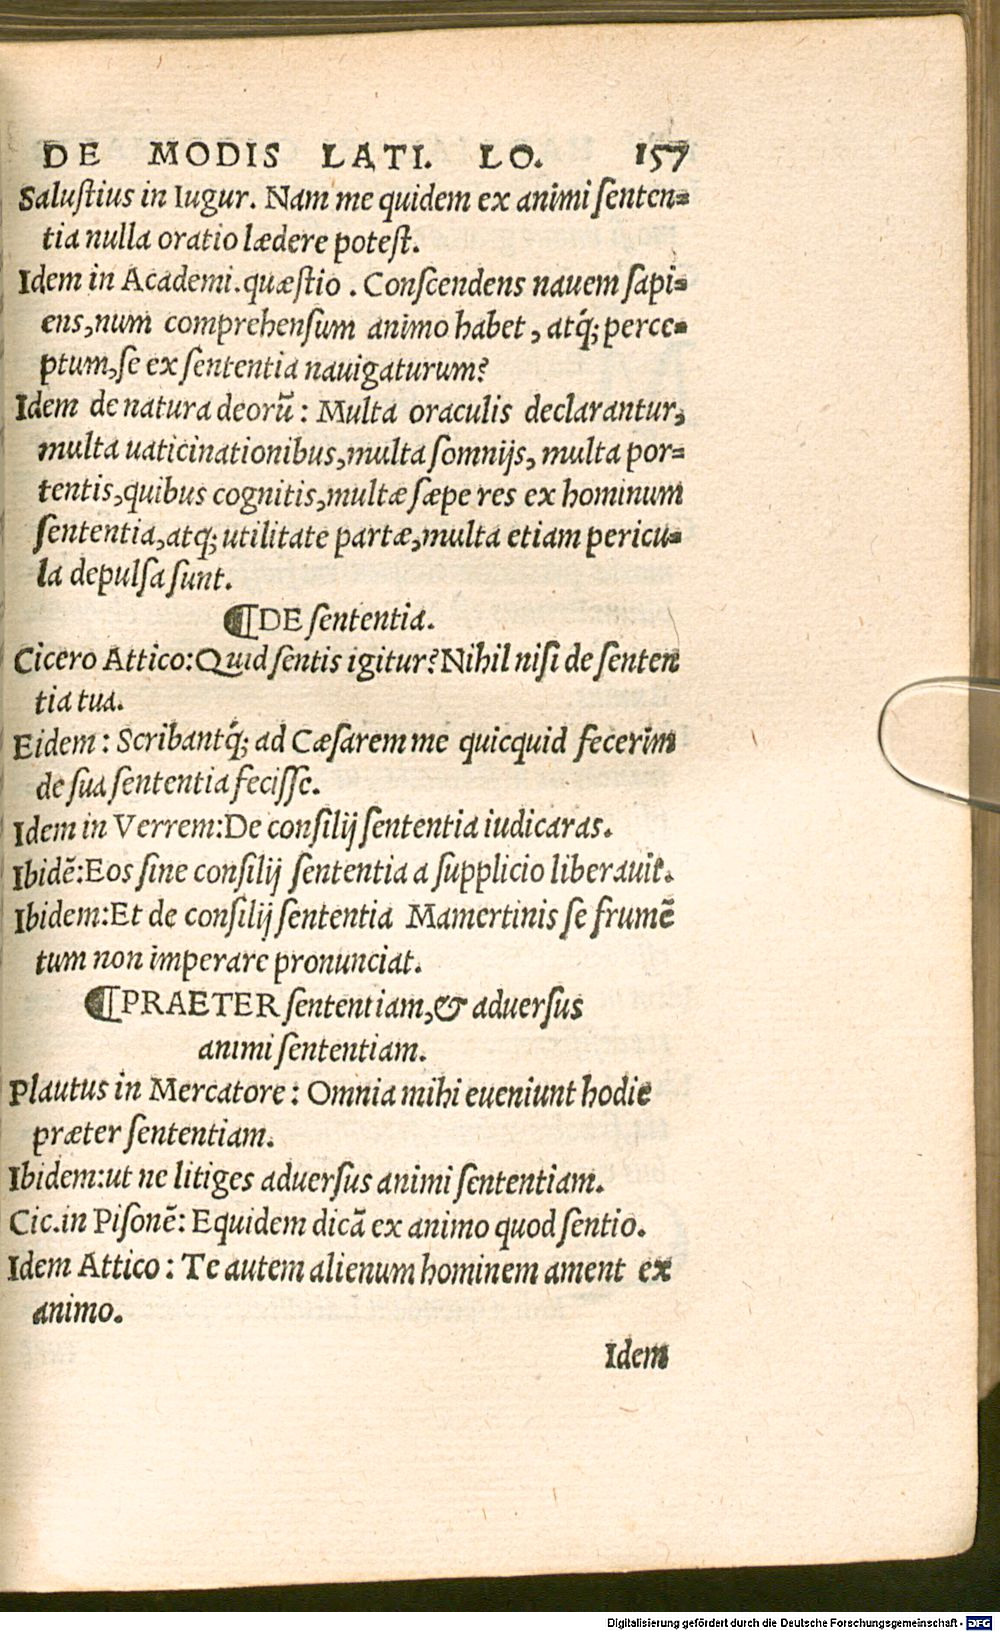 DE MODIS LATI. LO. 157
Saluſtius in Iugur. Nam me quidem ex animi ſenten⸗
tia nulla oratio lædere poteſt.
Idem in Academi.quæſtio . Conſcendens nauem ſapi⸗
ens,num comprehenſum animo habet , atq́; perce⸗
ptum,ſe ex ſententia nauigaturum?
Idem de natura deorũ : Multa oraculis declarantur,
multa uaticinationibus,multa ſomnijs, multa por⸗
tentis,quibus cognitis,multæ ſæpe res ex hominum
ſententia,atq; utilitate partæ,multa etiam pericu⸗
la depulſa ſunt.
¶DE ſententia.
Cicero Attico:Quid ſentis igitur?Nihil niſi de ſenten
tia tua.
Eidem : Scribantq́; ad Cæſarem me quicquid fecerim
de ſua ſententia feciſſe.
Idem in Verrem:De conſilij ſententia iudicaras.
Ibidẽ:Eos ſine conſilij ſententia a ſupplicio liberauit.
Ibidem:Et de conſilij ſententia Mamertinis ſe frumẽ
tum non imperare pronunciat.
¶PRAETER ſententiam,& aduerſus
animi ſententiam.
Plautus in Mercatore : Omnia mihi eueniunt hodie
præter ſententiam.
Ibidem:ut ne litiges aduerſus animi ſententiam.
Cic.in Piſonẽ: Equidem dicã ex animo quod ſentio.
Idem Attico : Te autem alienum hominem ament ex
animo.
Idem
Digitalisierung gefördert durch die Deutsche Forschungsgemeinschaft - DFG